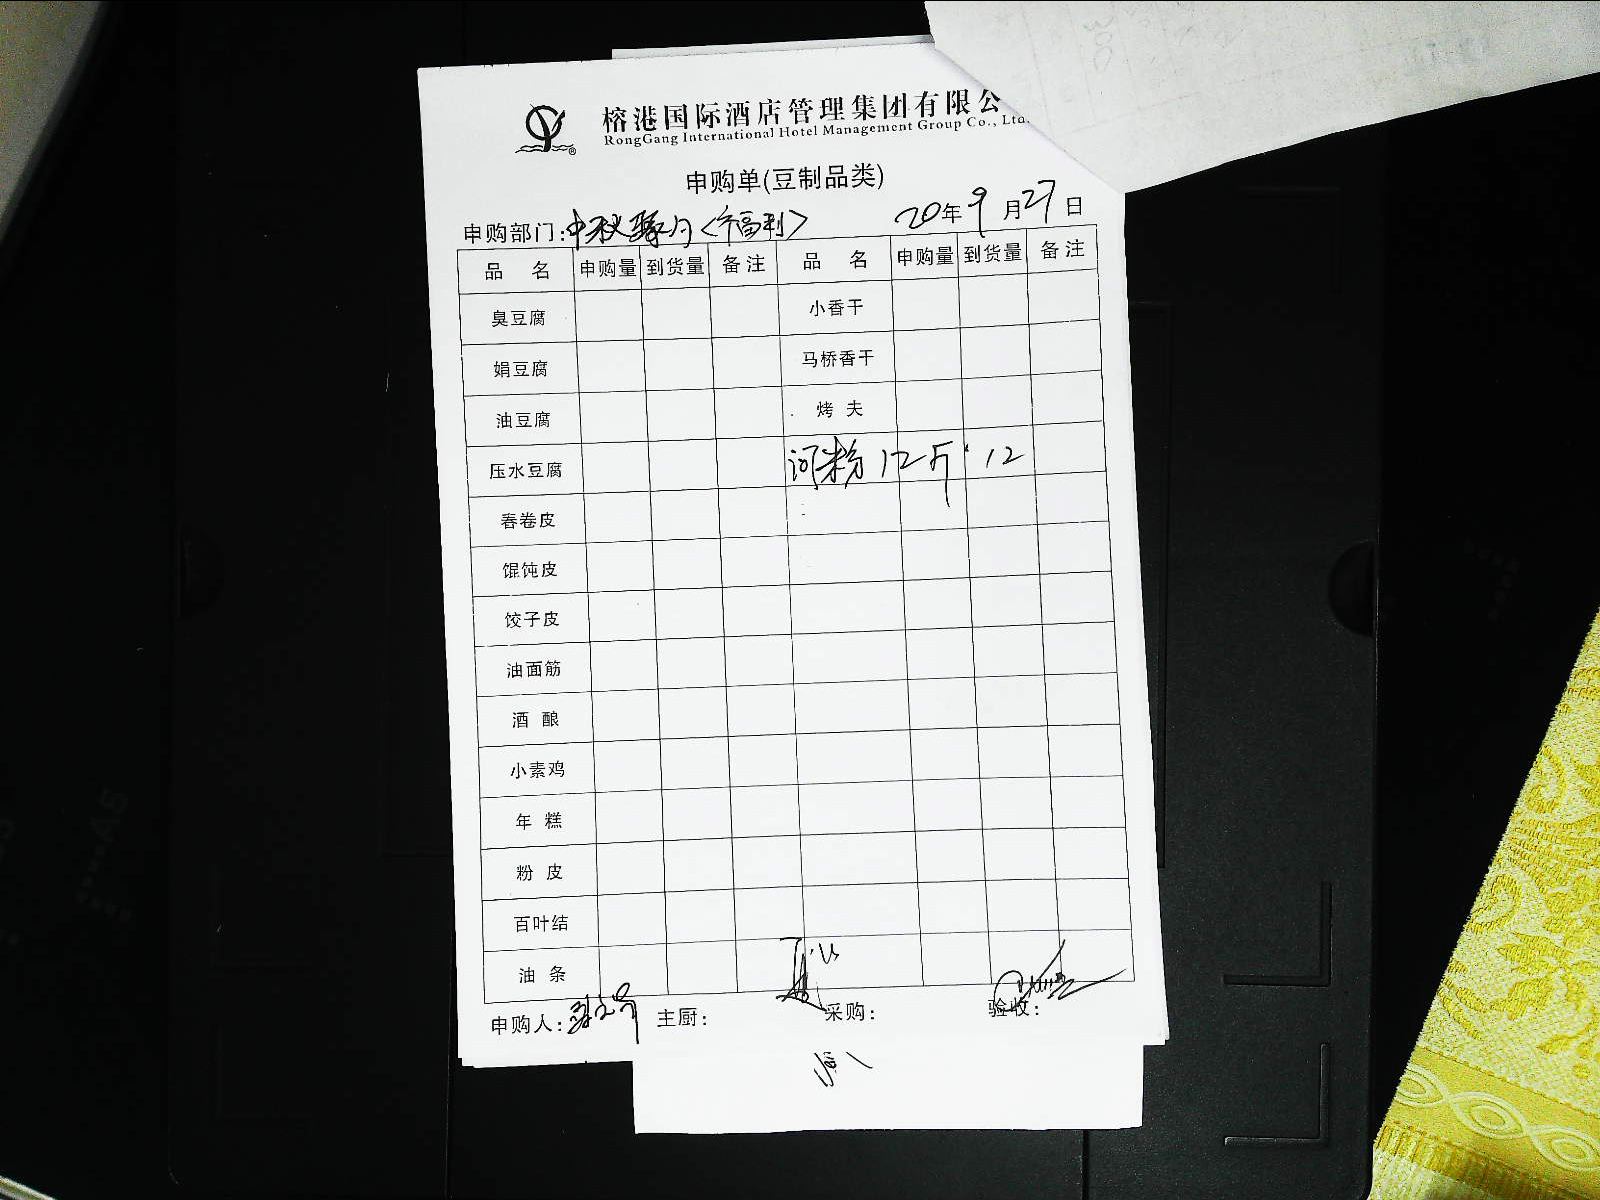 榕港国际酒店管理集团有限公
RongGang International Hotel Management Group Co., Ltd.
申购单(豆制品类)
申购部门:中秋 <福利> 20年9月27日
品 名 申购量 到货量 备注 品 名 申购量 到货量 备注
臭豆腐 小香干
娟豆腐 马桥香干
油豆腐 烤 夫
压水豆腐 河粉 12斤 12
春卷皮
馄饨皮
饺子皮
油面筋
酒 酿
小素鸡
年 糕
粉 皮
百叶结
油 条
申购人: 主厨: 采购: 验收: